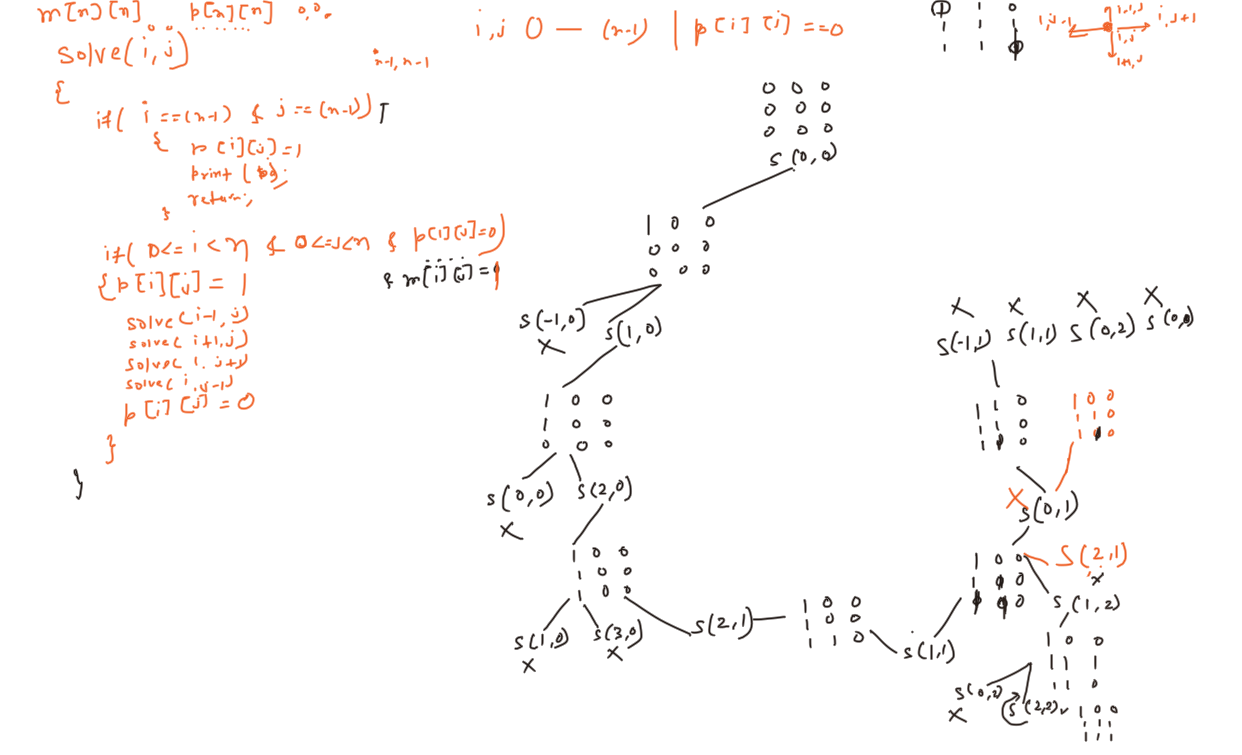 m[n][n] p[n][n] 0,0.
i,j 0 — (n-1) | p[i][j]==0
n-1,n-1
solve(i,j)
{
if( i==(n-1) & j==(n-1))
{ p[i][j]=1
print(p);
return;
}
if( 0<=i<n & 0<=j<n & p[i][j]=0)
& m[i][j]=1
{p[i][j]= 1
solve(i-1,j)
solve(i+1,j)
solve(i,j+1)
solve(i,j-1)
p[i][j]=0
}
}
1 1 0
1 1 1
1 1 0
i-1,j
i,j-1 i,j i,j+1
i+1,j
0 0 0
0 0 0
0 0 0
S(0,0)
1 0 0
0 0 0
0 0 0
S(-1,0) S(1,0)
X
1 0 0
1 0 0
0 0 0
S(0,0) S(2,0)
X
1 0 0
1 0 0
1 0 0
S(1,0) S(3,0) S(2,1)
X X
1 0 0
1 0 0
1 1 0
S(1,1)
X X X X
S(-1,1) S(1,1) S(0,2) S(0,0)
1 1 0
1 1 0
1 1 0
1 0 0
1 1 0
1 0
X S(0,1)
1 0 0
S(2,1)
X
S(1,2)
1 0 0
1 1 1
1 1 0
S(0,2) S(2,2)
X
1 0 0
1 1 1
1 1 1